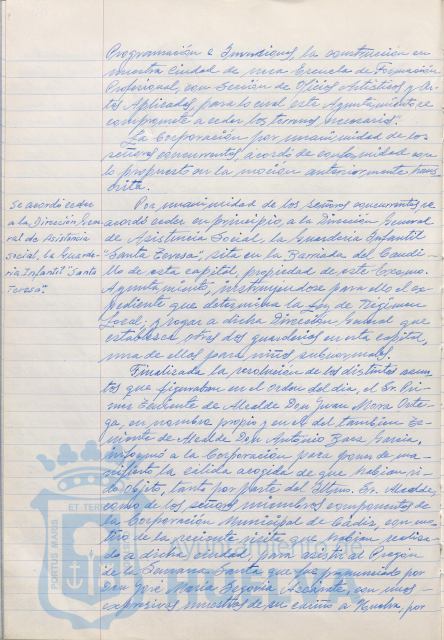 Programación e Inversiones, la construcción en
nuestra Ciudad de una Escuela de Formación
Profesional, con Sección de Oficios Artísticos y Ar-
tes Aplicadas, para lo cual este Ayuntamiento se
compromete a ceder los terrenos necesarios.
La Corporación por unanimidad de los
señores concurrentes, acordó de conformidad con
lo propuesto en la moción anteriormente trans-
crita.
Se acordó ceder
a la Dirección Gene-
ral de Asistencia
social, la Guarde-
ria Infantil "Santa
Teresa".
Por unanimidad de los señores concurrentes, se
acordó ceder en principio, a la Dirección General
de Asistencia Social, la Guardería Infantil
"Santa Teresa", sita en la Barriada del Caudi-
llo de esta capital, propiedad de este Excmo.
Ayuntamiento, instruyéndose para ello el ex-
pediente que determina la Ley de Régimen
Local, y rogar a dicha Dirección General que
establezca otras dos guarderías en esta capital,
una de ellas para niños subnormales.
Finalizada la resolución de los distintos asun-
tos que figuraban en el orden del día, el Sr. Pri-
mer Teniente de Alcalde Don Juan Mora Orte-
ga, en nombre propio y en el del también Te-
niente de Alcalde Don Antonio Baes Garcia,
informó a la Corporación para poner de ma-
nifiesto la cálida acogida de que habían si-
do objeto, tanto por parte del Iltmo. Sr. Alcalde,
como de los señores miembros componentes de
la Corporación Municipal de Cádiz, con mo-
tivo de la reciente visita que habían realiza-
do a dicha ciudad, para asistir al Pregón
de la Semana Santa que fue pronunciado por
Don José María Segovia Azcárate, con unas
expresivas muestras de su cariño a Huelva, por
PORTUS MARIS
ET TERR
HUELVA